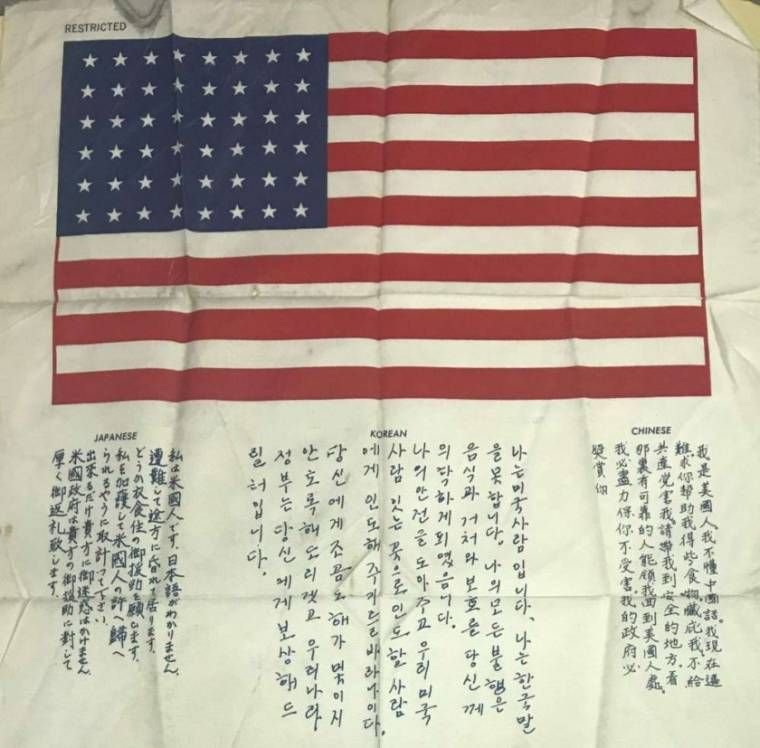 RESTRICTED
JAPANESE
私は米國人です.日本語がわかりません.
遭難して途方に暮れて居ります.
どうか衣食住の御援助を願ひます.
私を加護して米國人の許へ歸へ
られるやうに取計って下さい.
出來るだけ貴方に御迷惑はかけません.
米國政府は貴方の御援助に對して
厚く御返礼致します.
KOREAN
나는 미국사람입니다. 나는 한국말
을 못합니다. 나의 모든 불행은
음식과 거처와 보호를 당신께
의탁하게 되엿읍니다.
나의 안전을 도아주고 우리 미국
사람 잇는 곳으로 인도할 사람
에게 인도해 주기를 바라나이다.
당신에게 조곰도 해가 멎이지
안토록 해 드리겟고 우리나라
정부는 당신에게 보상해드
릴 터입니다.
CHINESE
我是美國人,我不懂中國話.我現在遇
難,求你幫助我得些食物,藏庇我,不給
共產党害我,請導我到安全的地方.看
那裏有可靠的人能領我回到美國人處.
我必盡力保你不受害,我的政府必
獎賞你.